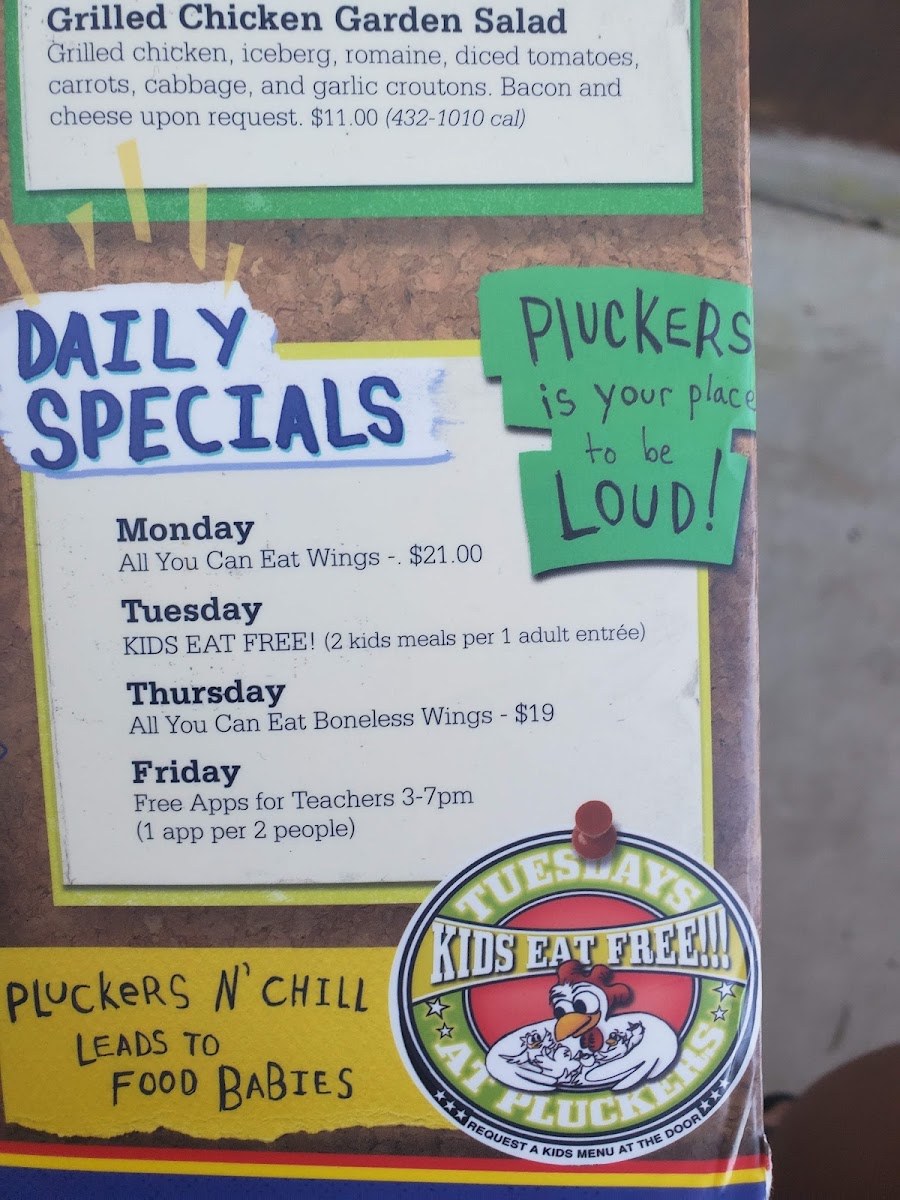 Grilled Chicken Garden Salad
Grilled chicken, iceberg, romaine, diced tomatoes,
carrots, cabbage, and garlic croutons. Bacon and
cheese upon request. $11.00 (432-1010 cal)
DAILY
SPECIALS
PLUCKERS
is your place
to be
LOUD!
Monday
All You Can Eat Wings -. $21.00
Tuesday
KIDS EAT FREE! (2 kids meals per 1 adult entrée)
Thursday
All You Can Eat Boneless Wings - $19
Friday
Free Apps for Teachers 3-7pm
(1 app per 2 people)
PLUCKERS N' CHILL
LEADS TO
FOOD BABIES
TUESDAYS
KIDS EAT FREE!!!
AT PLUCKERS
REQUEST A KIDS MENU AT THE DOOR